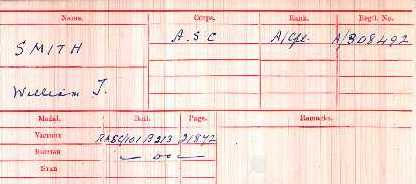 Name. Corps. Rank. Regtl. No.
SMITH A.S.C A/Cpl. A/308492
William J.
Medal. Roll. Page. Remarks.
Victory RASC/101B213 21842
British — do —
Star